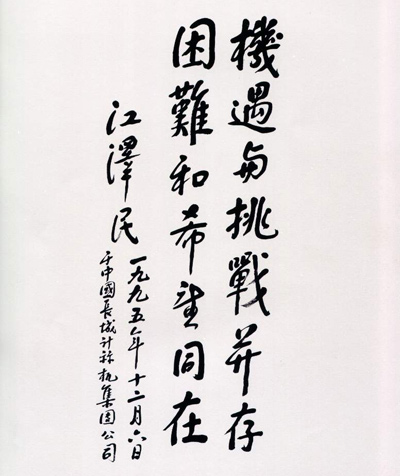 機遇与挑戰并存
困難和希望同在
江澤民
一九九五年十二月六日
于中國長城計祘机集团公司